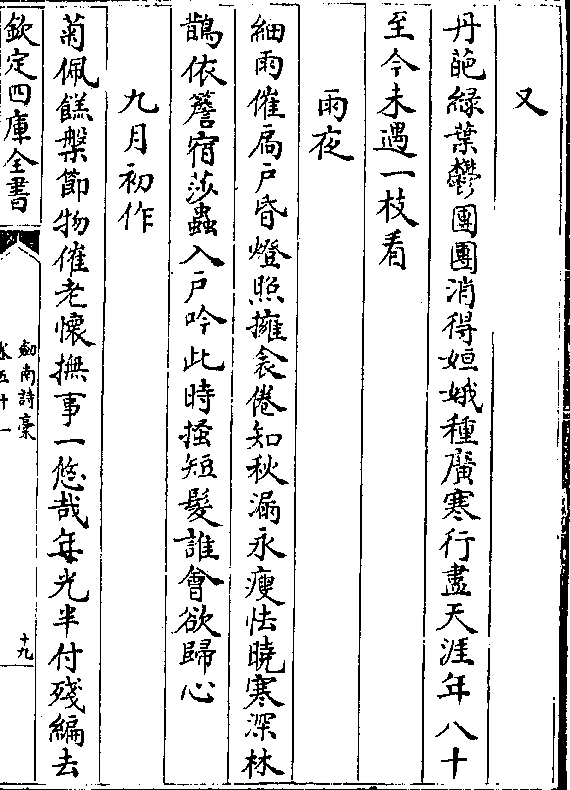 又
丹葩緑葉鬱團團消得姮娥種廣寒行盡天涯年八十
至今未遇一枝看
雨夜
細雨催扃戶昏燈照擁衾倦知秋漏永瘦怯曉寒深林
鵲依簷宿莎蟲入戶吟此時搔短髮誰會欲歸心
九月初作
菊佩餻槃節物催老懷撫事一悠哉年光半付殘編去
欽定四庫全書
劒南詩稾
卷五十一
十九